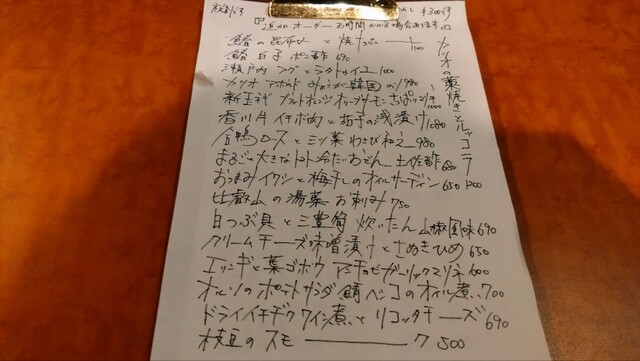 追加オーダーお時間かかる場合あります
鯖の昆布〆と焼 1100
鯖白子ポン酢 690
瀬戸内フグとシラトゥイユ 1000
カツオ アボカド みょうが 韓国のり 980
新玉ネギ ブラッドオレンジ オリーブサーモン 1000
香川牛イチボ肉と茄子の浅漬け 1080
合鴨ロースと三ツ葉わさび和え 980
まるごと大きなトマト冷たいおでん 土佐酢 680
おつまみイワシと梅干しのオイルサーディン 650
比叡山の湯葉お刺み 750
白つぶ貝と三豊筍 炊いたん 山椒風味 690
クリームチーズ味噌漬けとさぬきひめ 650
エリンギと葉ゴボウ アンチョビガーリックマリネ 600
オルソのポテトサラダ 鯖ベッコのオイル煮 700
ドライイチヂクワイン煮とリコッタチーズ 690
枝豆のスモーク 500
カツオの藁焼きとルッコラ 1200